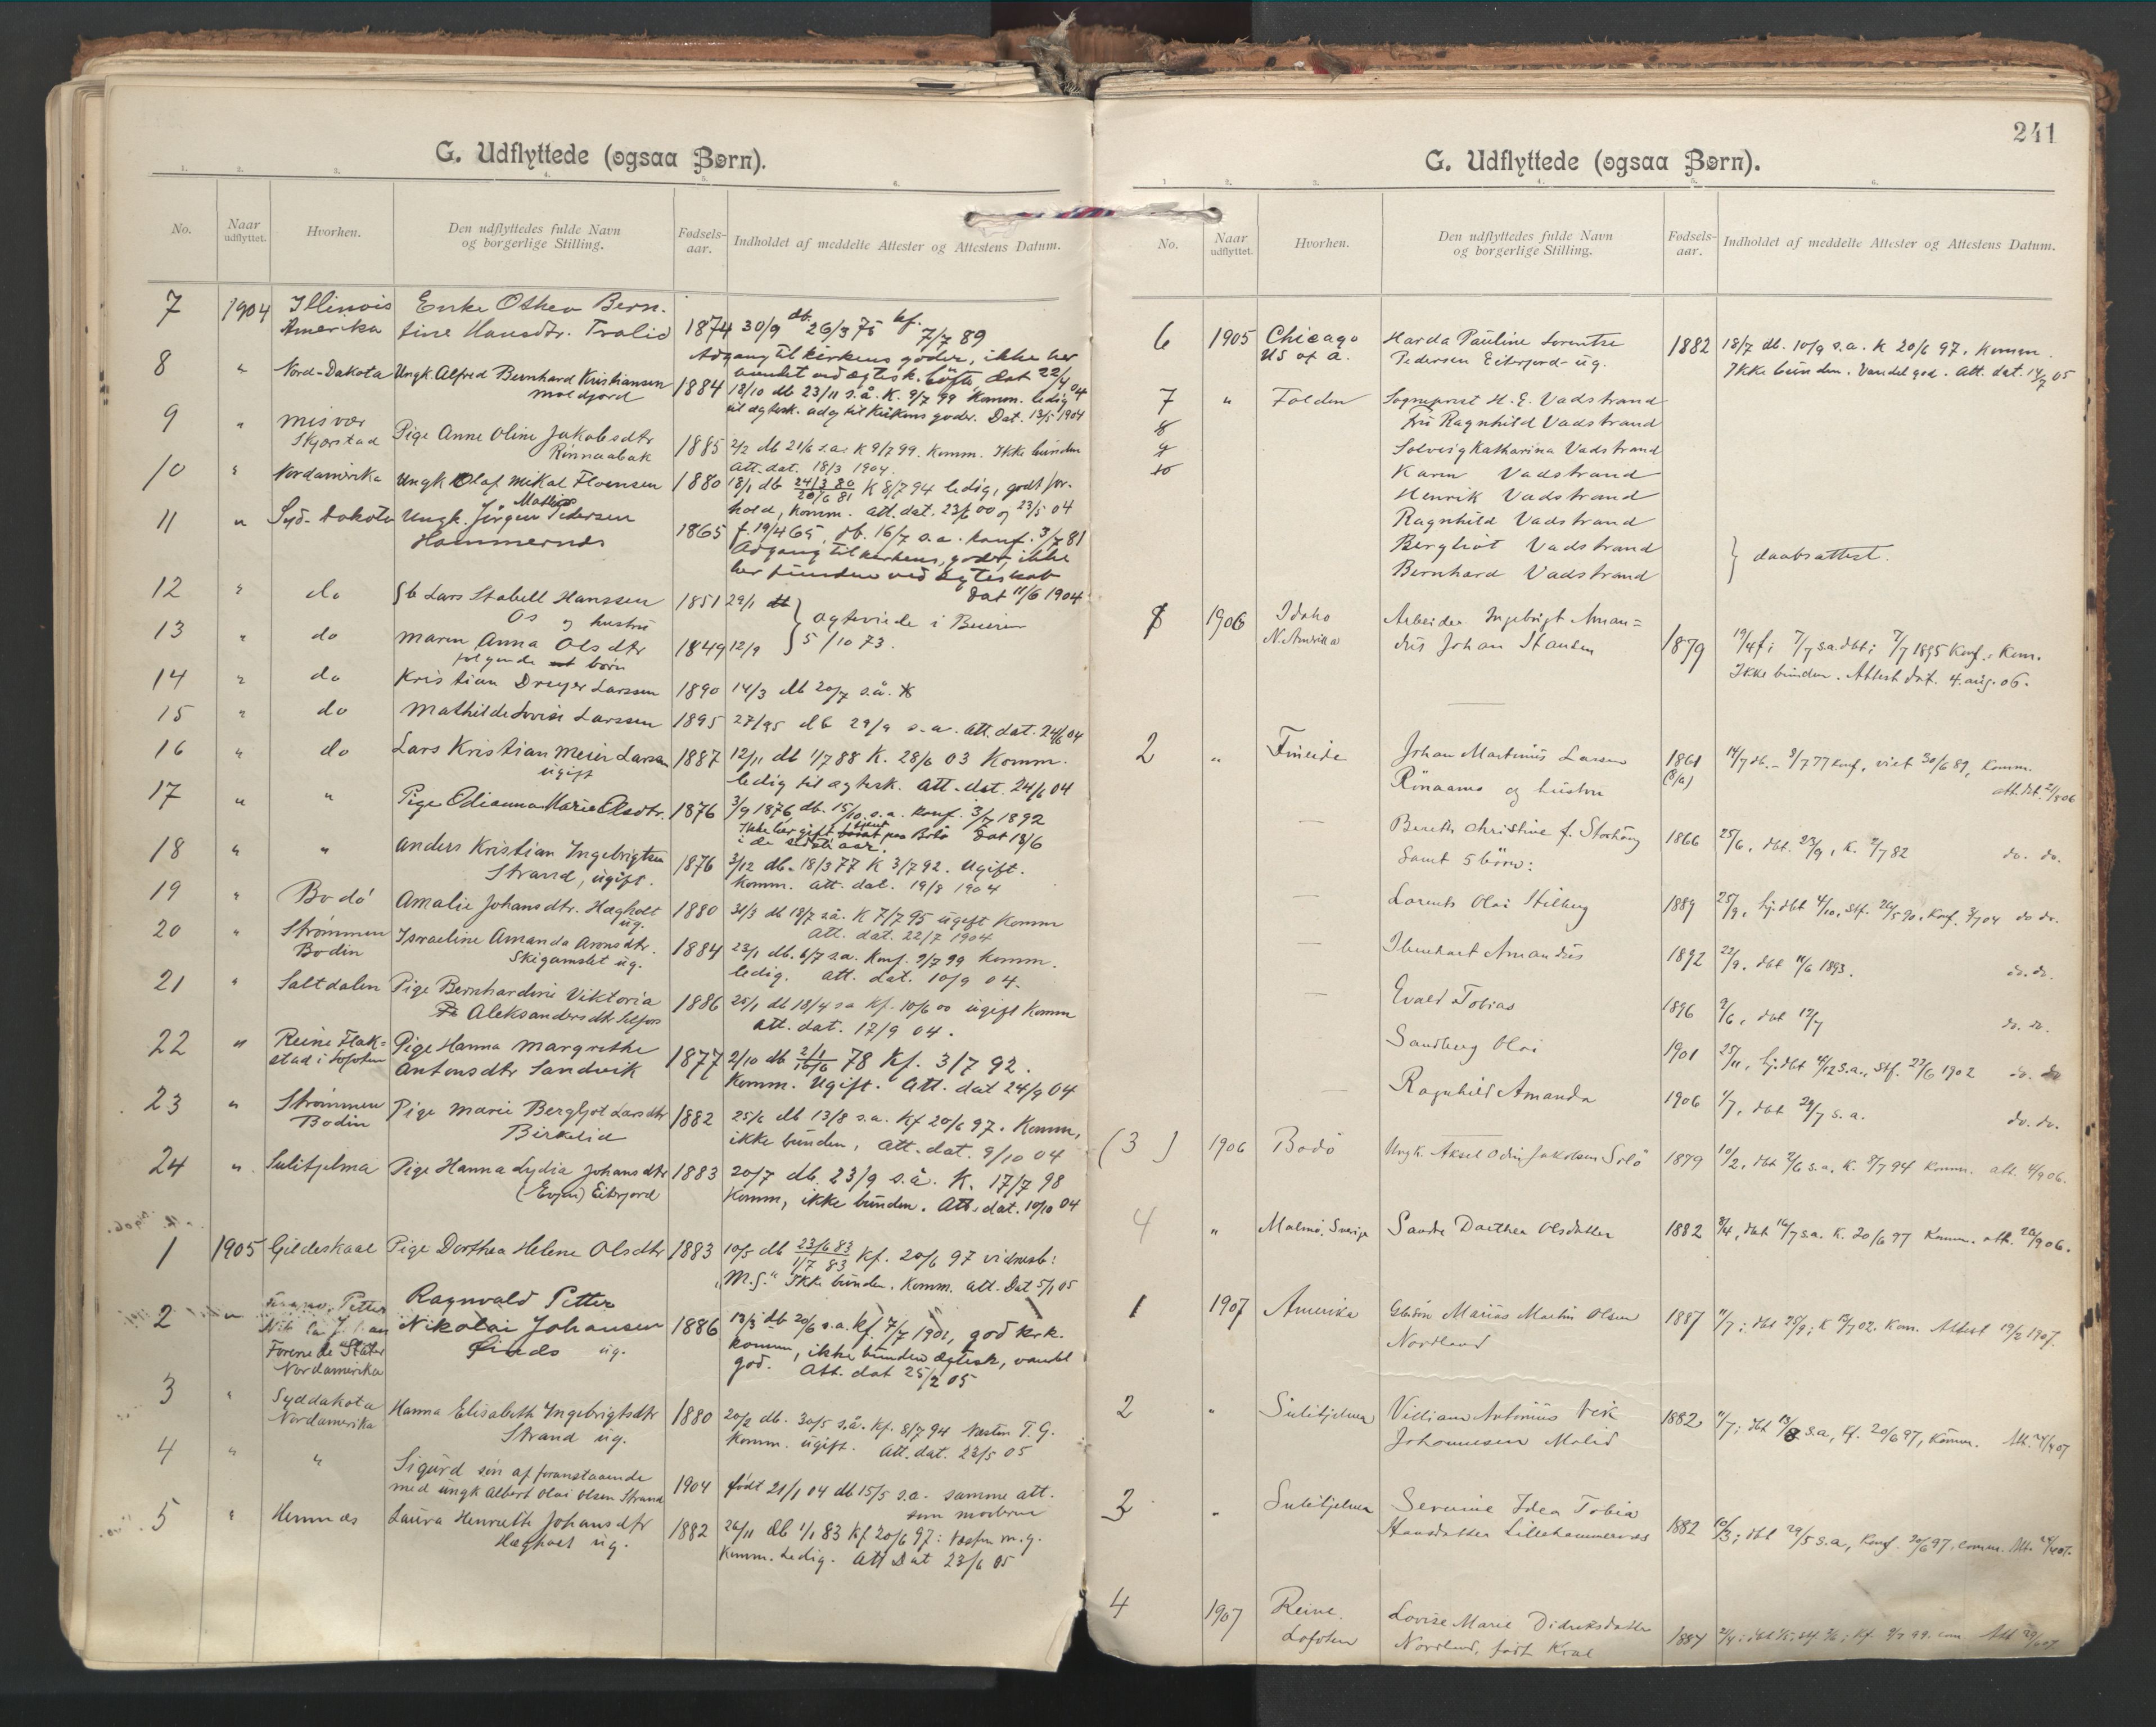 G. Udflyttede (ogsaa Børn).
1. 2. 3. 4. 5. 6.
No.
Naar udflyttet.
Hvorhen.
Den udflyttedes fulde Navn
og borgerlige Stilling.
Fødsels-
aar.
Indholdet af meddelte Attester og Attestens Datum.
7 1904 Illinois Enke Othea Bern.
Amerika tine Hansdtr. Tralid 1874 30/9 db. 26/3 75 kf. 7/7 89
Adgang til kirkens goder, ikke her
8 " Nord-Dakota Ungk. Alfred Bernhard Kristiansen bundet ved ægtesk. løfte, dat 22/4 04
moldjord 1884 18/10 db 23/11 s.å. K. 9/7 99 Komm. ledig
til ægtesk. adg til kirkens goder. Dat. 13/5 1904
9 " misvær Pige Anne Oline Jakobsdtr
Skjærstad Rinnaabak 1885 2/2 db 21/6 s.a. K 9/7 99. Komm. Ikke bunden
att. dat. 18/3 1904.
10 " Nordamerika Ungk Olaf Mikal Floensen 1880 18/1 db 24/3 80 20/6 81 K 8/7 94 ledig, godt for-
hold, Komm. att. dat. 23/6 00 og 23/5 04
11 " Syd-Dakota Ungk. Jörgen Mathias Pedersen
Hammernes 1865 f. 19/4 65, db. 16/7 s.a. konf. 3/7 81
Adgang til kirkens goder, ikke
her bunden ved ægteskab
dat 11/6 1904
12 " do Gb Lars Stabell Hanssen 1851 29/1
Os og hustru } ægteviede i Beiern
13 " do Maren Anna Olsdtr 1849 12/9 5/10 73.
følgende børn
14 " do Kristian Dreyer Larssen 1890 14/3 db 20/7 s.å.
15 " do Mathilde Lovise Larssen 1895 27/ 95 db 29/9 s.a. att. dat. 24/6 04
16 " do Lars Kristian Meier Larsen 1887 12/11 db 1/7 88 K. 28/6 03 Komm.
ugift ledig til ægtesk. att. dat. 24/6 04
17 " " Pige Edianna Marie Olsdtr. 1876 3/9 1876, db. 15/10 s.a. konf. 3/7 1892
Ikke her gift Dat 13/6
18 " " Anders Kristian Ingebrigtsen 1876 3/12 db. 18/3 77 K 3/7 92. Ugift.
Strand, ugift. Komm. att. dat. 19/8 1904
19 " Bodó Amalie Johansdtr. Hegholt 1880 31/3 db 18/7 s.å. K 7/7 95 ugift Komm
ug. att. dat. 22/7 1904
20 " Strömmen Israeline Amanda Aronsdtr.
Bodin Skigamslet ug. 1884 23/1 db. 6/7 s.a. Konf. 9/7 99 Komm.
ledig. att. dat. 10/9 04.
21 " Saltdalen Pige Bernhardine Viktoria
Aleksandersdtr Selfors 1886 25/1 db 18/4 s.a kf. 10/6 00 ugift Komm
att. dat. 17/9 04.
22 " Reine Flak= Pige Hanna Margrethe
stad i Lofoten Antonsdtr Sandvik 1877 2/10 db 2/1 16/6 78 Kf. 3/7 92.
Komm. Ugift. Att. dat 24/9 04
23 " Strömmen Pige Marie Bergljot Larsdtr
Bodin Birkelid 1882 25/6 db 13/8 s.a. Kf 20/6 97. Komm,
ikke bunden, att. dat. 9/10 04
24 " Sulitjelma Pige Hanna Lydia Johansdtr 1883 20/7 db. 23/9 s.å. K. 17/7 98
(Evjen) Eiterjord Komm, ikke bunden. Att. dat. 10/10 04
1 1905 Gildeskaal Pige Dorthea Helene Olsdtr 1883 10/5 db 23/6 83 1/7 83 Kf. 20/6 97 vidnesb:
"M.G." Ikke bunden. Komm. att. Dat 5/1 05
2 " Ragnvald Petter
Nikolai Johansen 1886 13/3 db 20/6 s.a. Kf. 7/7 1901, god krk.
Forenede Stater ug. komm, ikke bunden ægtesk, vandel
Nordamerika god. Att. dat 25/2 05
3 " Syddakota Hanna Elisabeth Ingebrigtsdtr 1880 20/2 db. 30/5 s.å. Kf. 8/7 94 Næsten T. G.
Nordamerika Strand ug. Komm. ugift. Att. dat. 23/5 05
4 " " Sigurd søn af foranstaaende
med ungk Albert Olai Olsen Strand 1904 født 21/1 04 db 15/5 s.a. samme att.
som moderen
5 " Hemnæs Laura Henrette Johansdtr 1882 26/11 db 1/1 83 Kf 20/6 97: næsten m.g.
Hegholt ug. Komm. Ledig. Att Dat 23/6 05
241
G. Udflyttede (ogsaa Børn).
1. 2. 3. 4. 5. 6.
No.
Naar udflyttet.
Hvorhen.
Den udflyttedes fulde Navn
og borgerlige Stilling.
Fødsels-
aar.
Indholdet af meddelte Attester og Attestens Datum.
6 1905 Chicago Harda Pauline Lorentse 1882 18/7 db. 10/9 s.a. K 20/6 97. Komm.
US of a. Pedersen Eiterjord- ug. Ikke bunden. Vandel god. Att. dat. 14/7 05
7 " Folden Sogneprest H. E. Vadstrand
8 Fru Ragnhild Vadstrand
9 Solveig Katharina Vadstrand
10 Karen Vadstrand
Henrik Vadstrand
Ragnhild Vadstrand
Bergliot Vadstrand } daabsattest.
Bernhard Vadstrand
1906 Idaho Arbeider Ingebrigt Aman=
N. Amerika dus Johan Staulen 1879 19/4 f; 7/7 s.a. dbt; 7/7 1895 Konf. Kom.
Ikke bunden. Attest dat. 4. aug. 06.
2 " Fineide Johan Martinus Larsen 1861 14/7 db. - 8/7 77 konf, viet 30/6 89, Komm.
Rönaamo og hustru att. dat. 2/8 06
— Bereth Christine f. Storhaug 1866 25/6, dbt. 23/9, K. 2/7 82 do. do.
Samt 5 börn:
— Lorents Olai Stilberg 1889 25/9, hj. dbt 4/10, stf. 26/5 90, Konf. 3/7 04 do do.
— Amandus 1892 22/9. dbt 11/6 1893. do. do.
— Evald Tobias 1896 9/6, dbt 12/7 do. do.
Sandberg Olai 1901 25/11, hj. dbt 4/12 s.a., stf. 22/6 1902 do. do
— Ragnhild Amanda 1906 1/7, dbt 29/7 s.a. do. do.
(3) 1906 Bodö Ungk. Aksel Odin Jakobsen Solö 1879 10/2, dbt 2/6 s.a. K. 8/7 94 Komm. att. 4/9 06.
4 " Malmö, Sverige Sandre Dorthea Olsdatter 1882 8/4, dbt 16/7 s.a. K. 20/6 97 Komm. att. 20/9 06.
1 1907 Amerika Gbsön Marius Martin Olsen 1887 11/7; dbt 25/9; K 13/7 02. Kom. Attest 19/2 1907.
Nordland
2 " Sulitjelma Villiam Antonius Vik 1882 11/7; dbt 13/8 s.a, Kf. 20/6 97, Komm. Att. 24/4 07
Johannesen Molid
3 " Sulitjelma Serine Idea Tobia
Hansdatter Lillehammernæs 1882 10/3; dbt 29/5 s.a, Konf. 20/6 97, comm. Att. 24/4 07.
4 1907 Reine. Lovise Marie Didriksdatter
Lofoten Nordland, født Kral 1884 Kf. 9/7 99. com Att